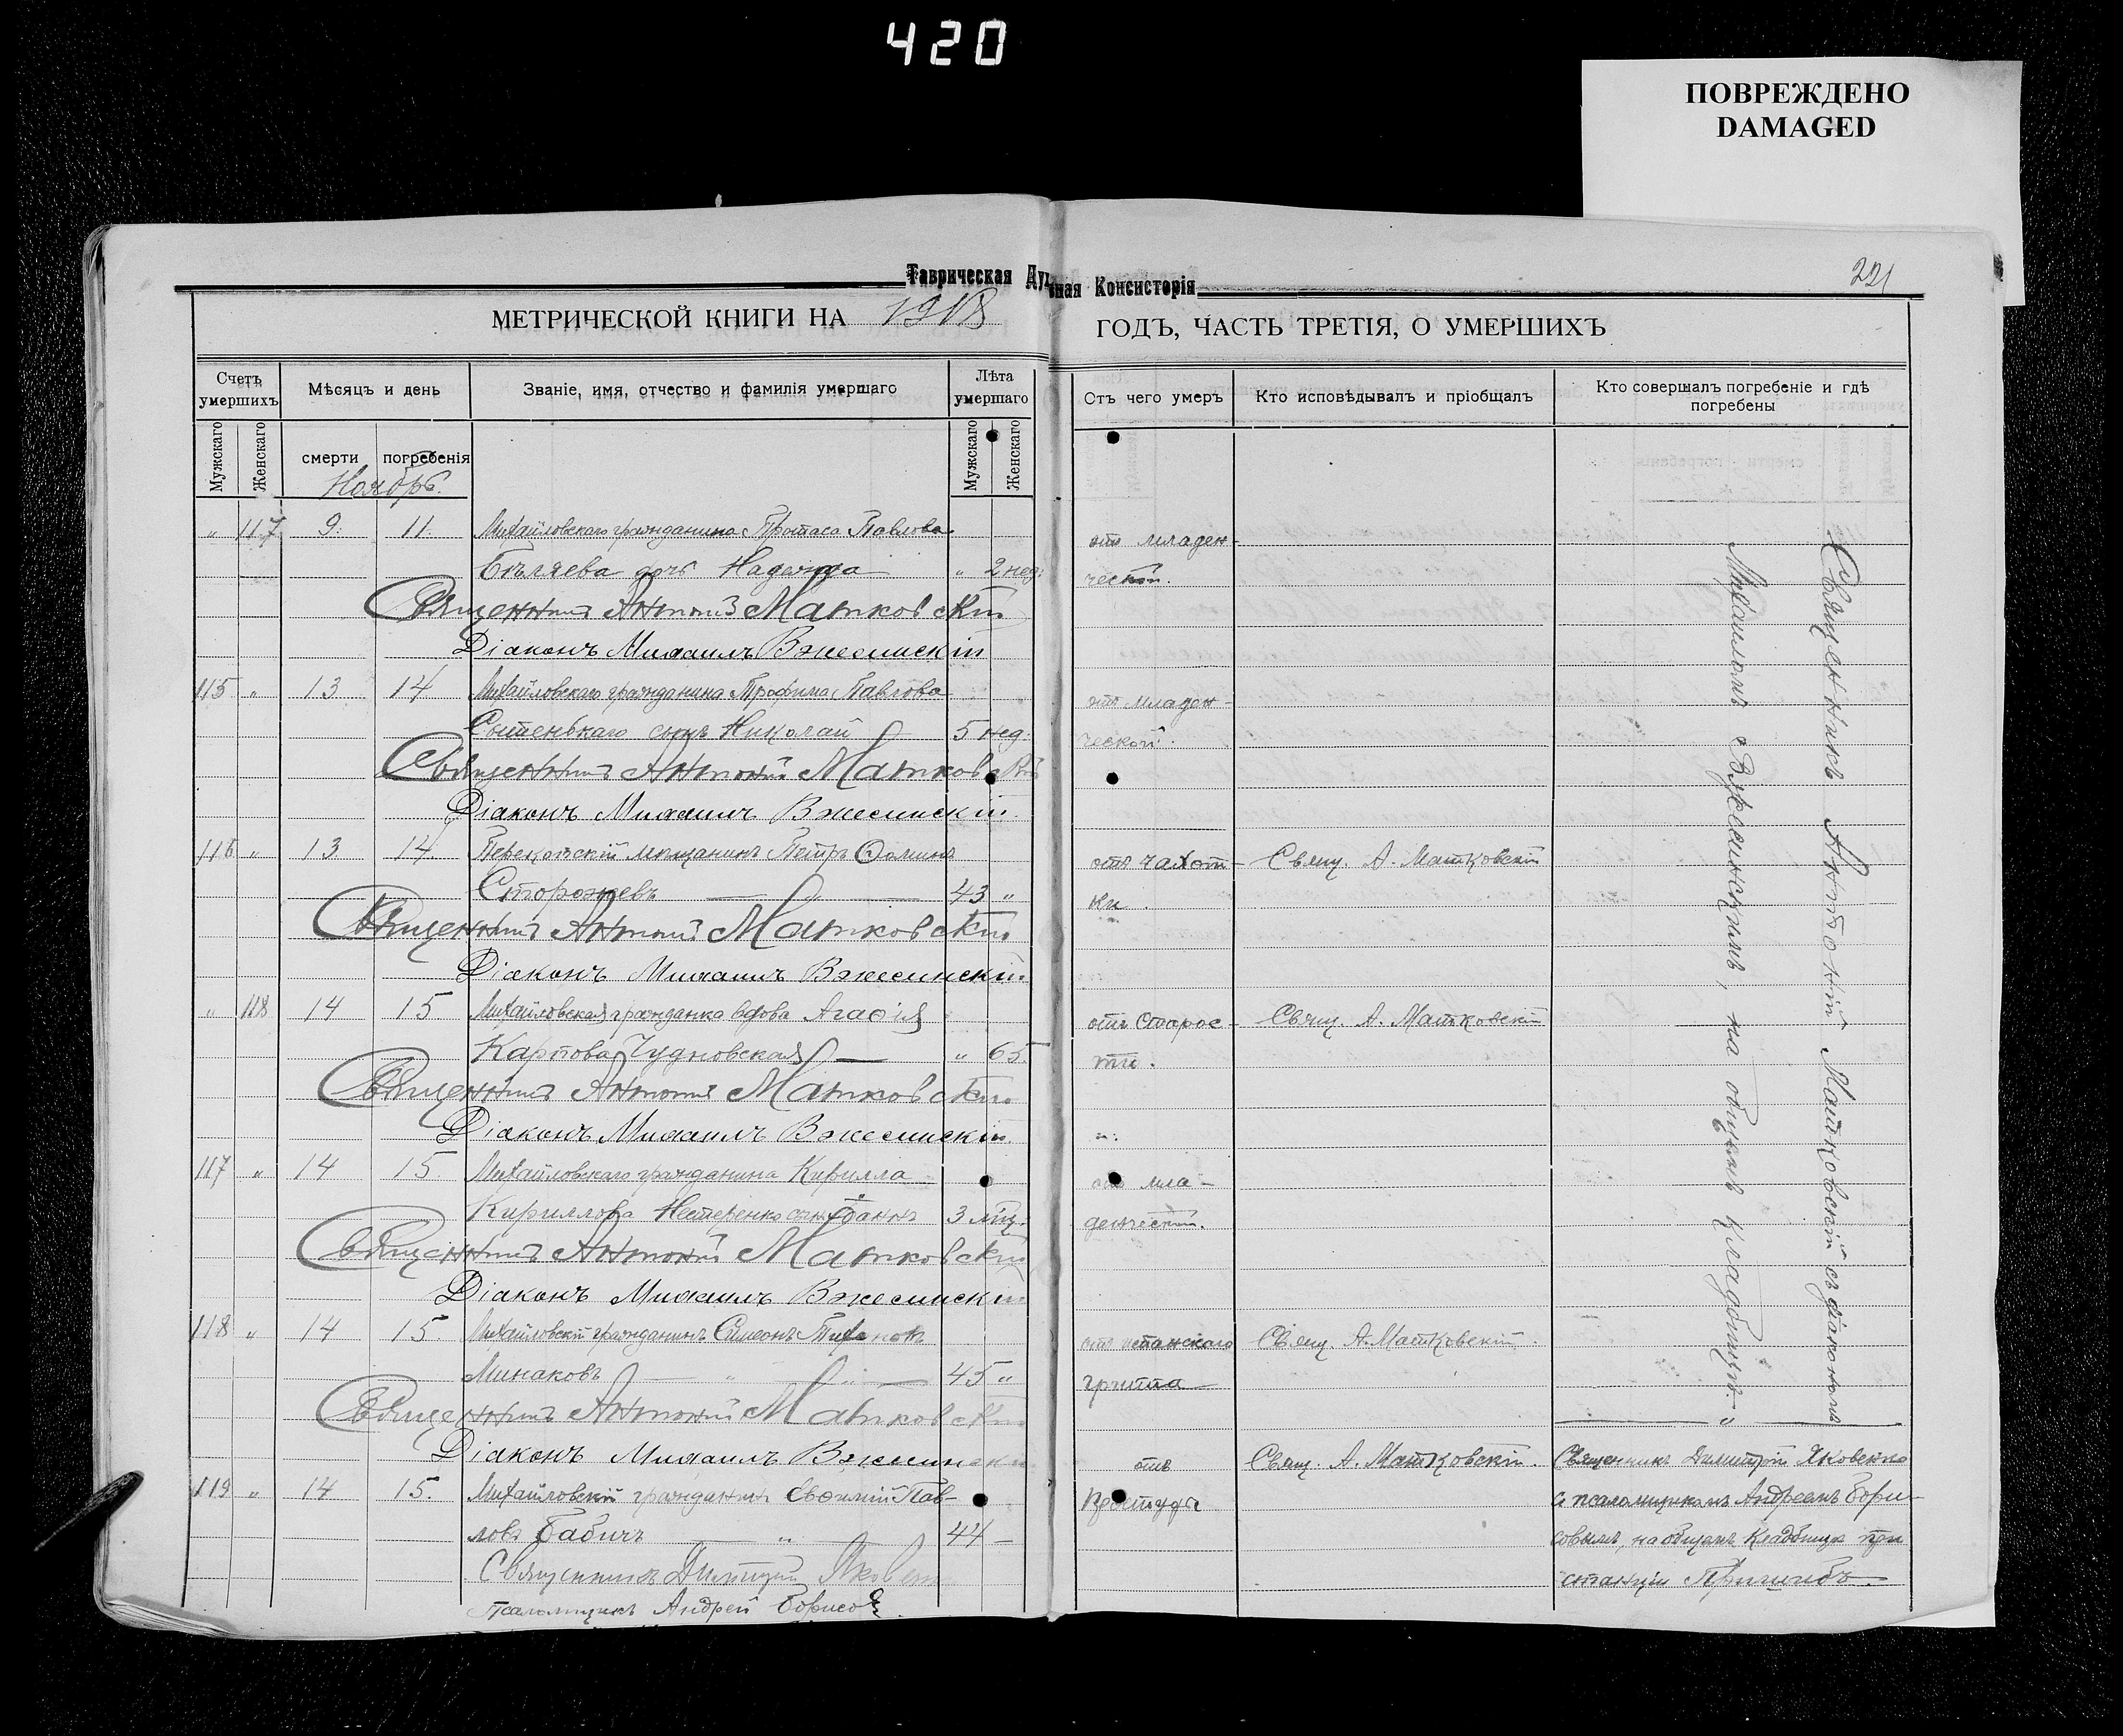 420
ПОВРЕЖДЕНО
DAMAGED
Таврическая Духовная Консисторія
221
МЕТРИЧЕСКОЙ КНИГИ НА 1918 ГОДЪ, ЧАСТЬ ТРЕТІЯ, О УМЕРШИХЪ
Счетъ умершихъ
Мѣсяцъ и день
Званіе, имя, отчество и фамилія умершаго
Лѣта умершаго
Отъ чего умеръ
Кто исповѣдывалъ и пріобщалъ
Кто совершалъ погребеніе и гдѣ погребены
Мужскаго
Женскаго
смерти
погребенія
Мужскаго
Женскаго
Ноябрь.
" 117 9. 11. Михайловскаго гражданина Протаса Павлова отъ младен-
Бѣляева дочь Надежда " 2 нед. ческой.
Священникъ Антоній Матковскій
Діаконъ Михаилъ Вжесинскій
115 " 13 14 Михайловскаго гражданина Трофима Павлова отъ младен-
Сытенькаго сынъ Николай 5 нед. ческой.
Священникъ Антоній Матковскій
Діаконъ Михаилъ Вжесинскій
116 " 13 14 Перекопскій мѣщанинъ Петръ Фоминъ отъ чахот- Свящ. А. Матковскій
Сторожевъ 43 " ки.
Священникъ Антоній Матковскій
Діаконъ Михаилъ Вжесинскій
" 118 14 15 Михайловская гражданка вдова Агафія отъ старос- Свящ. А. Матковскій
Карпова Чудновская " 65. ти.
Священникъ Антоній Матковскій
Діаконъ Михаилъ Вжесинскій
117 " 14 15. Михайловскаго гражданина Кирилла отъ мла-
Кириллова Нестеренко сынъ Іоаннъ 3 мѣц. денческой.
Священникъ Антоній Матковскій
Діаконъ Михаилъ Вжесинскій
118 " 14 15. Михайловскій гражданинъ Симеонъ Тихоновъ отъ испанскаго Свящ. А. Матковскій.
Минаковъ " " 45 " гриппа
Священникъ Антоній Матковскій
Діаконъ Михаилъ Вжесинскій
Священникъ Антоній Матковскій съ діакономъ
Михаиломъ Вжесинскимъ, на общемъ кладбищѣ
119 " 14 15. Михайловскій гражданинъ Евфимій Пав- отъ Свящ. А. Матковскій. Священникъ Димитрій Яковенко
ловъ Бабичъ " 44 - простуды съ псаломщикомъ Андреемъ Бори-
совымъ, на общемъ кладбищѣ при
станціи Пришибъ.
Священникъ Димитрій Яковенко
Псаломщикъ Андрей Борисовъ